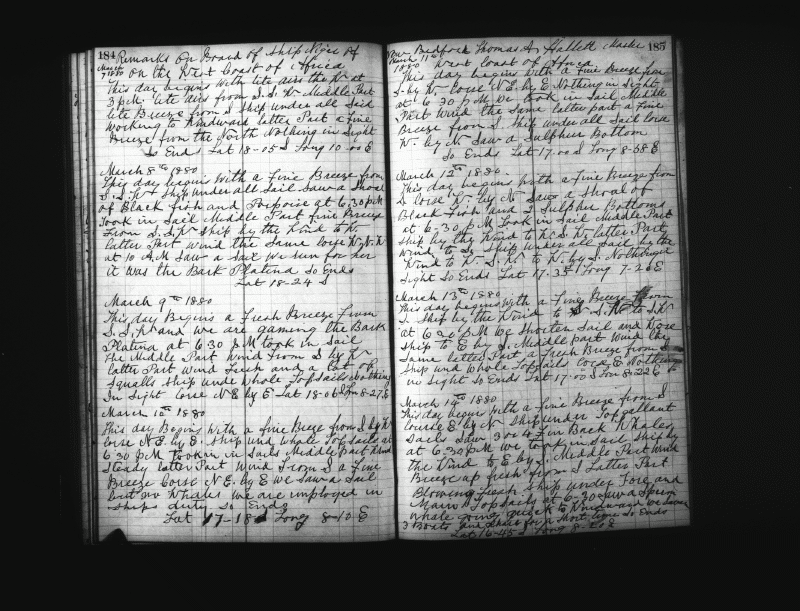 184 Remarks On Board of Ship Niger of
March 7 1880 On the West Coast of Africa
This day begins with lite airs the W at
3 P.M. lite airs from S.S.W. Middle Part
lite Breeze from S Ship under all Sail
working to windward latter Part a fine
Breeze from the North Nothing in Sight
So Ends Lat 18-05 S Long 10-00 E
March 8th 1880
This day begins with a fine Breeze from
S.S.W Ship under all Sail Saw a Shoal
of Black fish and Porpoise at 6.30 P.M
Took in Sail Middle Part fine Breeze
From S.S.W Ship by the Wind to W.
latter Part Wind the Same corse W.N.W
at 10 A.M Saw a Sail we run for her
it was the Bark Platina So Ends
Lat 18-24 S
March 9th 1880
This day Begins a Fresh Breeze from
S.S.W and we are gaming the Bark
Platina at 6.30 P.M took in Sail
the Middle Part Wind from S by W
latter Part Wind Fresh and a lot of
Squalls Ship under Whole Topsails Nothing
In Sight corse N.E by E Lat 18-06 S Lon 8-27 E
March 10th 1880
This day Begins with a fine Breeze from S by W
corse N.E. by E. Ship und Whole Topsails at
6 30 P.M Took in in Sails Middle Part Wind
Steady latter Part Wind From S a fine
Breeze Corse N.E. by E we Saw a Sail
but no Whales we are imployed in
Ships duty So Ends
Lat 17-18 S Long 8-10 E
New Bedford Thomas A. Hallett Master 185
March 11th 1880 West Coast of Africa
This day begins with a fine Breeze from
S by W. corse N.E. by E Nothing in Sight
at 6 30 P.M. We took in Sail Middle
Part Wind the Same latter part a fine
Breeze from S Ship under all Sail Corse
W. by N. Saw a Sulpher Bottom
So Ends Lat 17.00 S Long 8-58 E
March 12th 1880
This day begins with a fine Breeze from
S corse W. by N. Saw a Shoal of
Black Fish and 2 Sulpher Bottoms
at 6.30 P.M Took in Sail Middle Part
Ship by the Wind to W.S.W. latter Part
Wind to S. Ship under all Sail by the
Wind to W.S.W. to W. by S. Nothing in
Sight So Ends Lat 17-35 Long 7-26 E
March 13th 1880
This day begins with a fine Breeze from
S. Ship by the Wind to S.W. to S.W
at 6 20 P.M We Shorten Sail and Wore
Ship to E by S. Middle part Wind the
Same latter Part a Fresh Breeze from S
Ship und Whole Topsails Corse E Nothing
in Sight So Ends Lat 17-00 S Lon 8-22 E
March 14th 1880
This day begins with a fine Breeze from S
course E by N Ship under Topgallant
Sails Saw 3 or 4 Fin Back Whales
at 6.30 P.M we took in Sail Ship by
the Wind to E by S. Middle Part Wind
Breeze up fresh from S Latter Part
Blowing Fresh Ship under Fore and
Main Topsails at 6-30 Saw a Sperm
Whale going quick to Windward We Lowerd
3 Boats and chase for a Short time So Ends
Lat 16-45 S Long 8-20 E